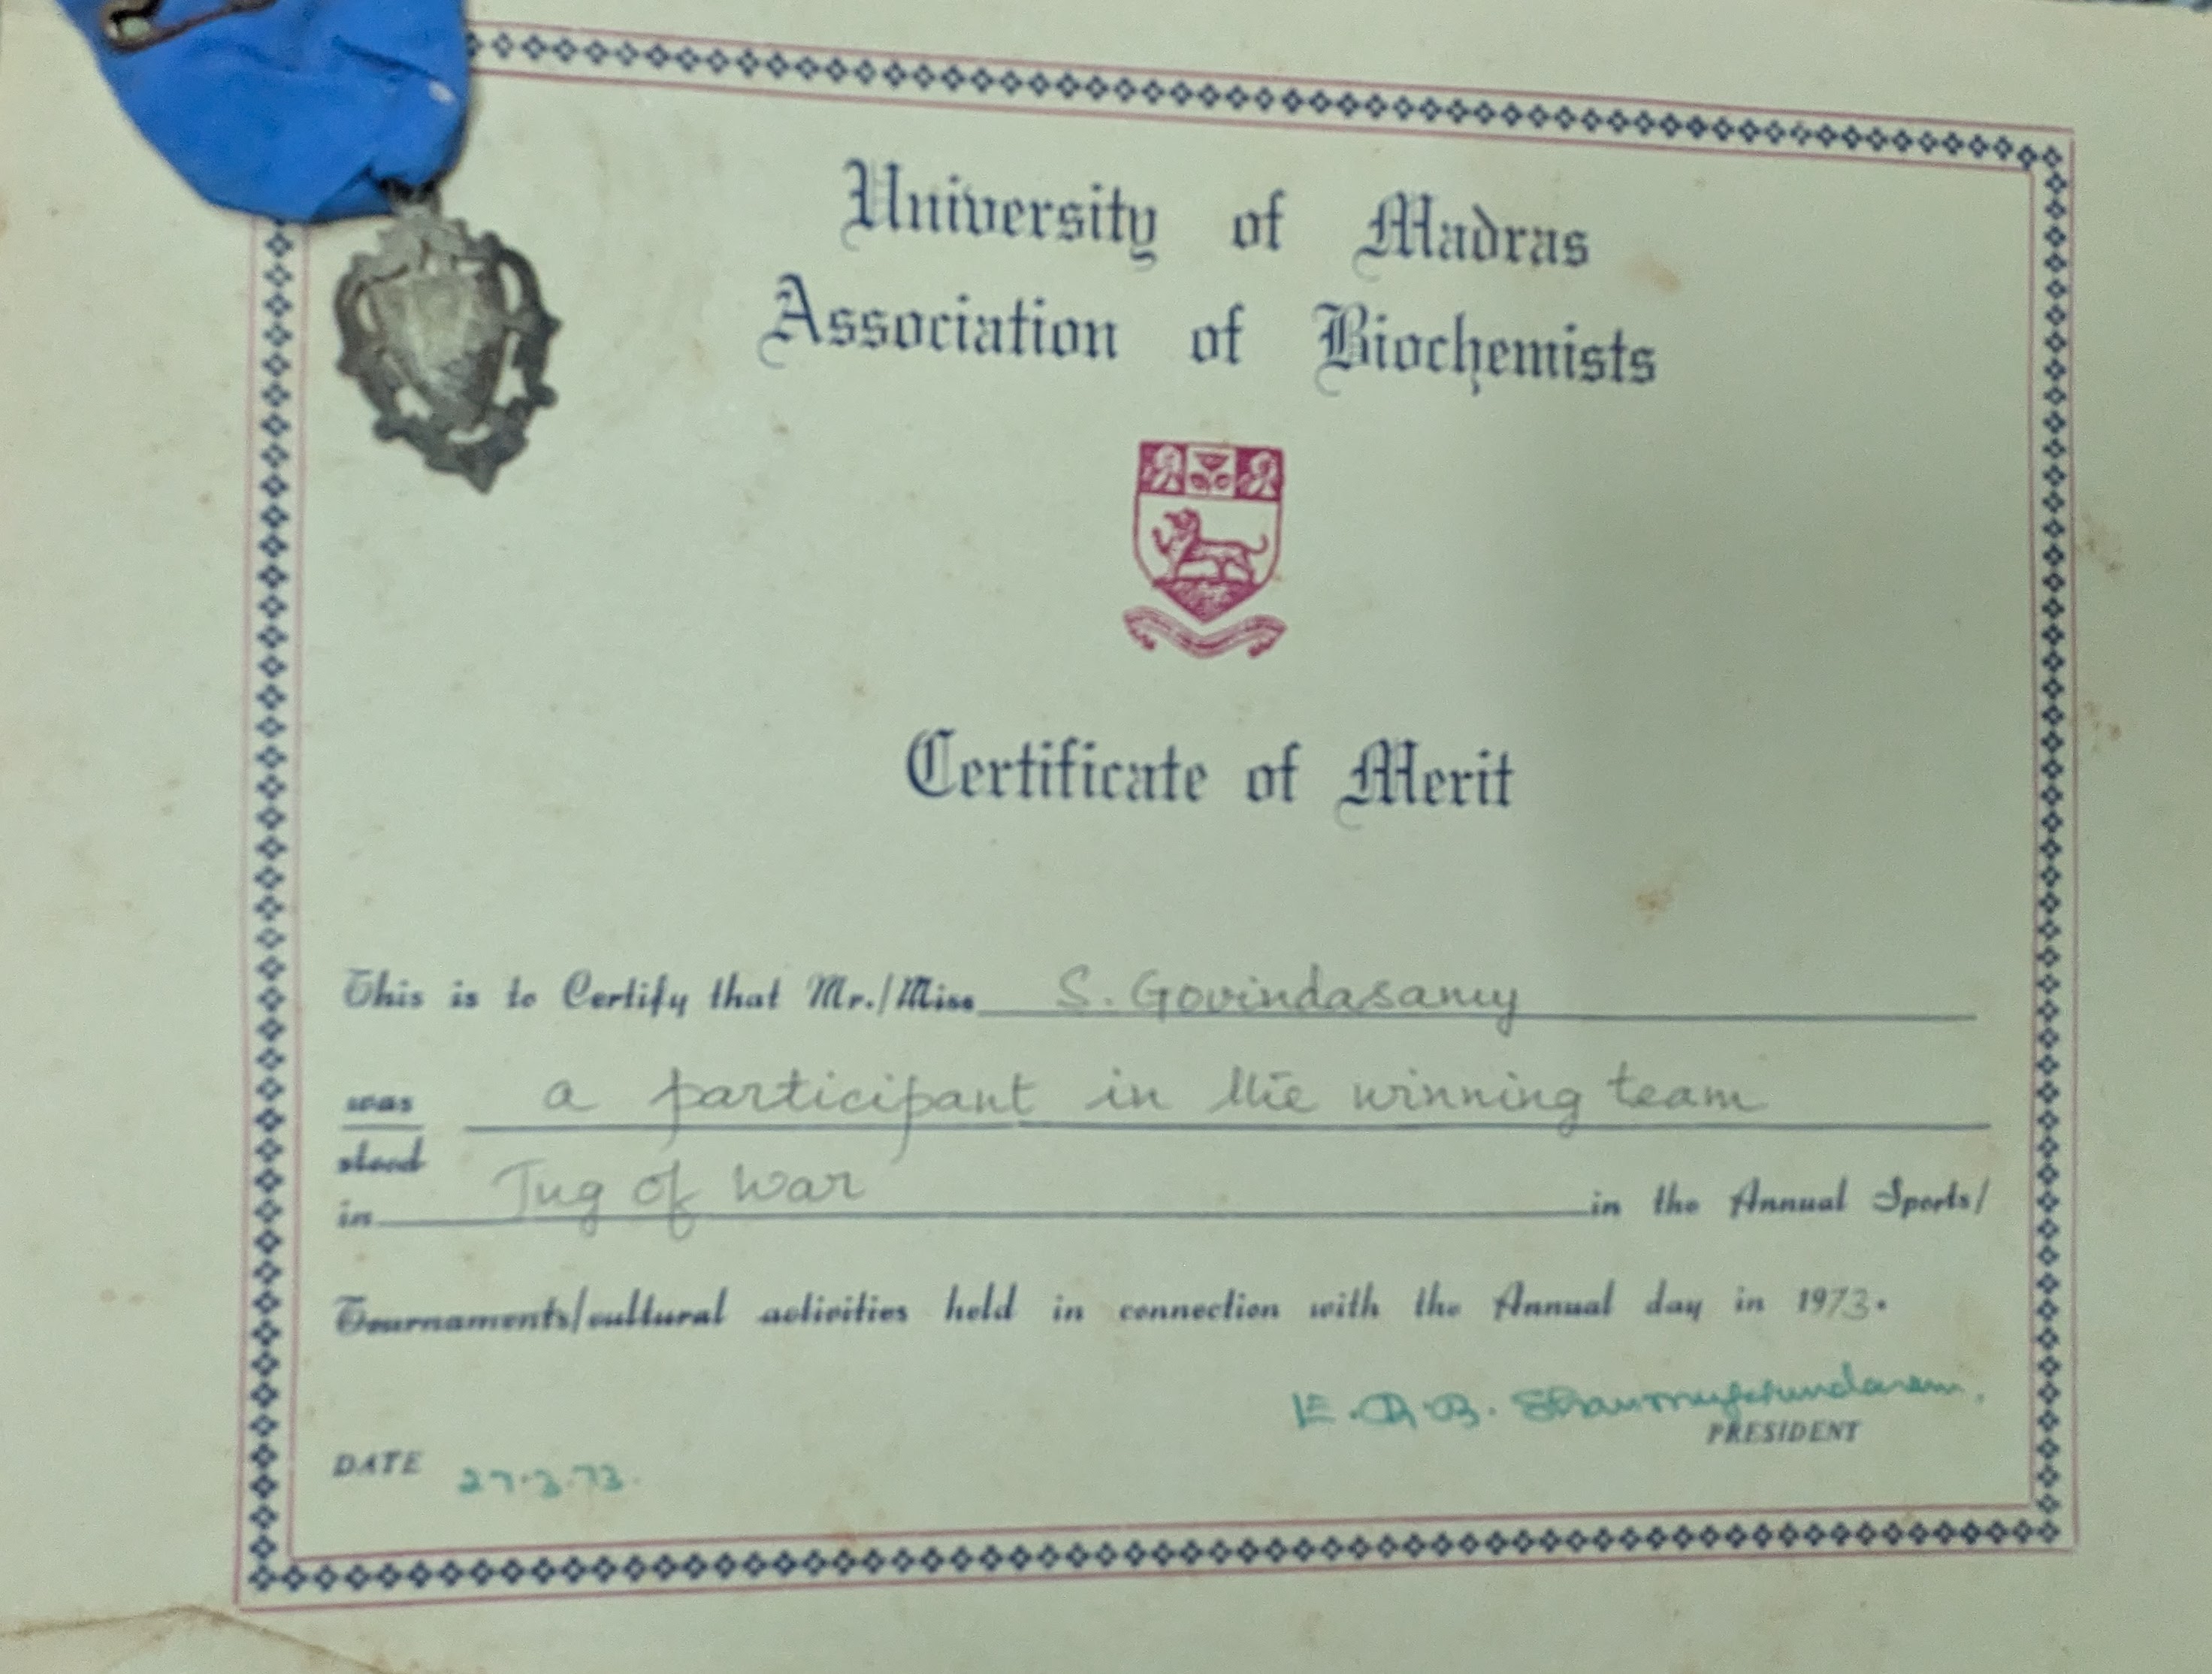 University of Madras
Association of Biochemists
Certificate of Merit
This is to Certify that Mr./Miss S. Govindasamy
was a participant in the winning team
stood
in Tug of War in the Annual Sports/
Tournaments/cultural activities held in connection with the Annual day in 1973.
E.R.B. Shanmugasundaram.
PRESIDENT
DATE 27.3.73.